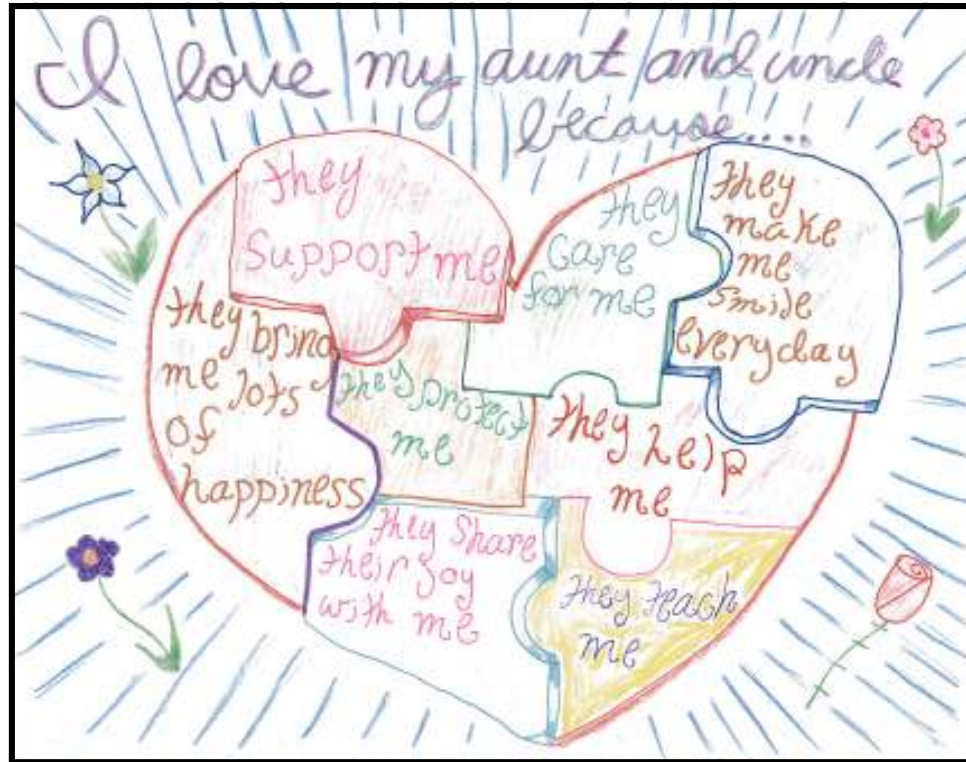 I love my aunt and uncle
because....
they
support me
they
care
for me
they
make
me
smile
everyday
they bring
me lots
of
happiness
they protect
me
they help
me
they share
their joy
with me
they teach
me